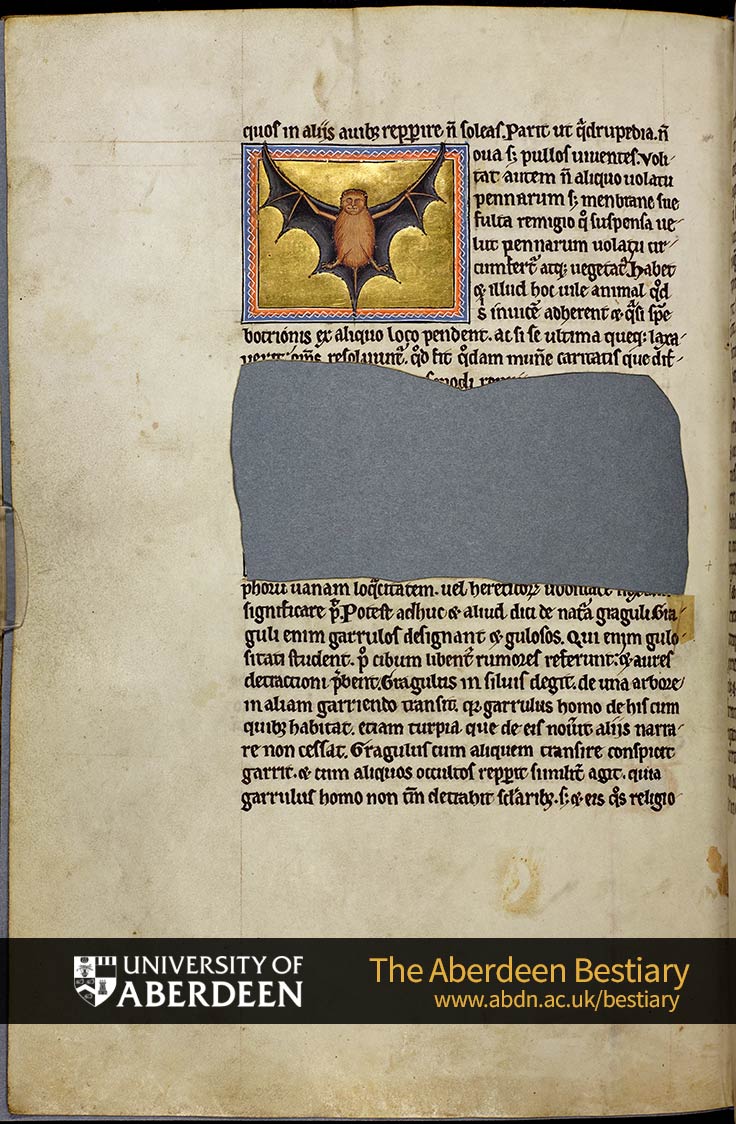 quos in alijs auibꝫ repperire n̄ soleas. Parit ut q̄drupedia. n̄
oua sꝫ pullos uiuentes. Voli-
tat autem n̄ aliquo uolatu
pennarum sꝫ menbrane sue
fulta remigio qͦ suspensa ue-
lut pennarum uolatu cir-
cumfert̄ atqꝫ uegetat̄. Habet
⁊ illud hoc uile animal qd̄
s̄ inuicē adherent ⁊ q̄si spē
botrionis ex aliquo loco pendent. ac si se ultima queqꝫ laxa
uerit oīns resoluunt̄. qd̄ fit q̄dam mun̄e caritatis que dif-
phoru uanam loq̄citatem. uel hereticoꝝ
significare p̄. Potest adhuc ⁊ aliud dici de nat̄a graguli. Gra-
guli enim garrulos designant ⁊ gulosos. Qui enim gulo-
sitati student. p̄ cibum libent̄ rumores referunt: ⁊ aures
detractioni p̄bent. Gragulus in siluis degit. de una arbore
in aliam garriendo transit. qꝫ garrulus homo de his cum
quibꝫ habitat. etiam turpia que de eis nouit alijs narra-
re non cessat. Gragulus cum aliquem transire conspicit
garrit. ⁊ cum aliquos occultos repperit similit̄ agit. quia
garrulus homo non tm̄ detrahit sc̄laribꝫ. sꝫ ⁊ eis qͦs religio
UNIVERSITY OF
ABERDEEN
The Aberdeen Bestiary
www.abdn.ac.uk/bestiary